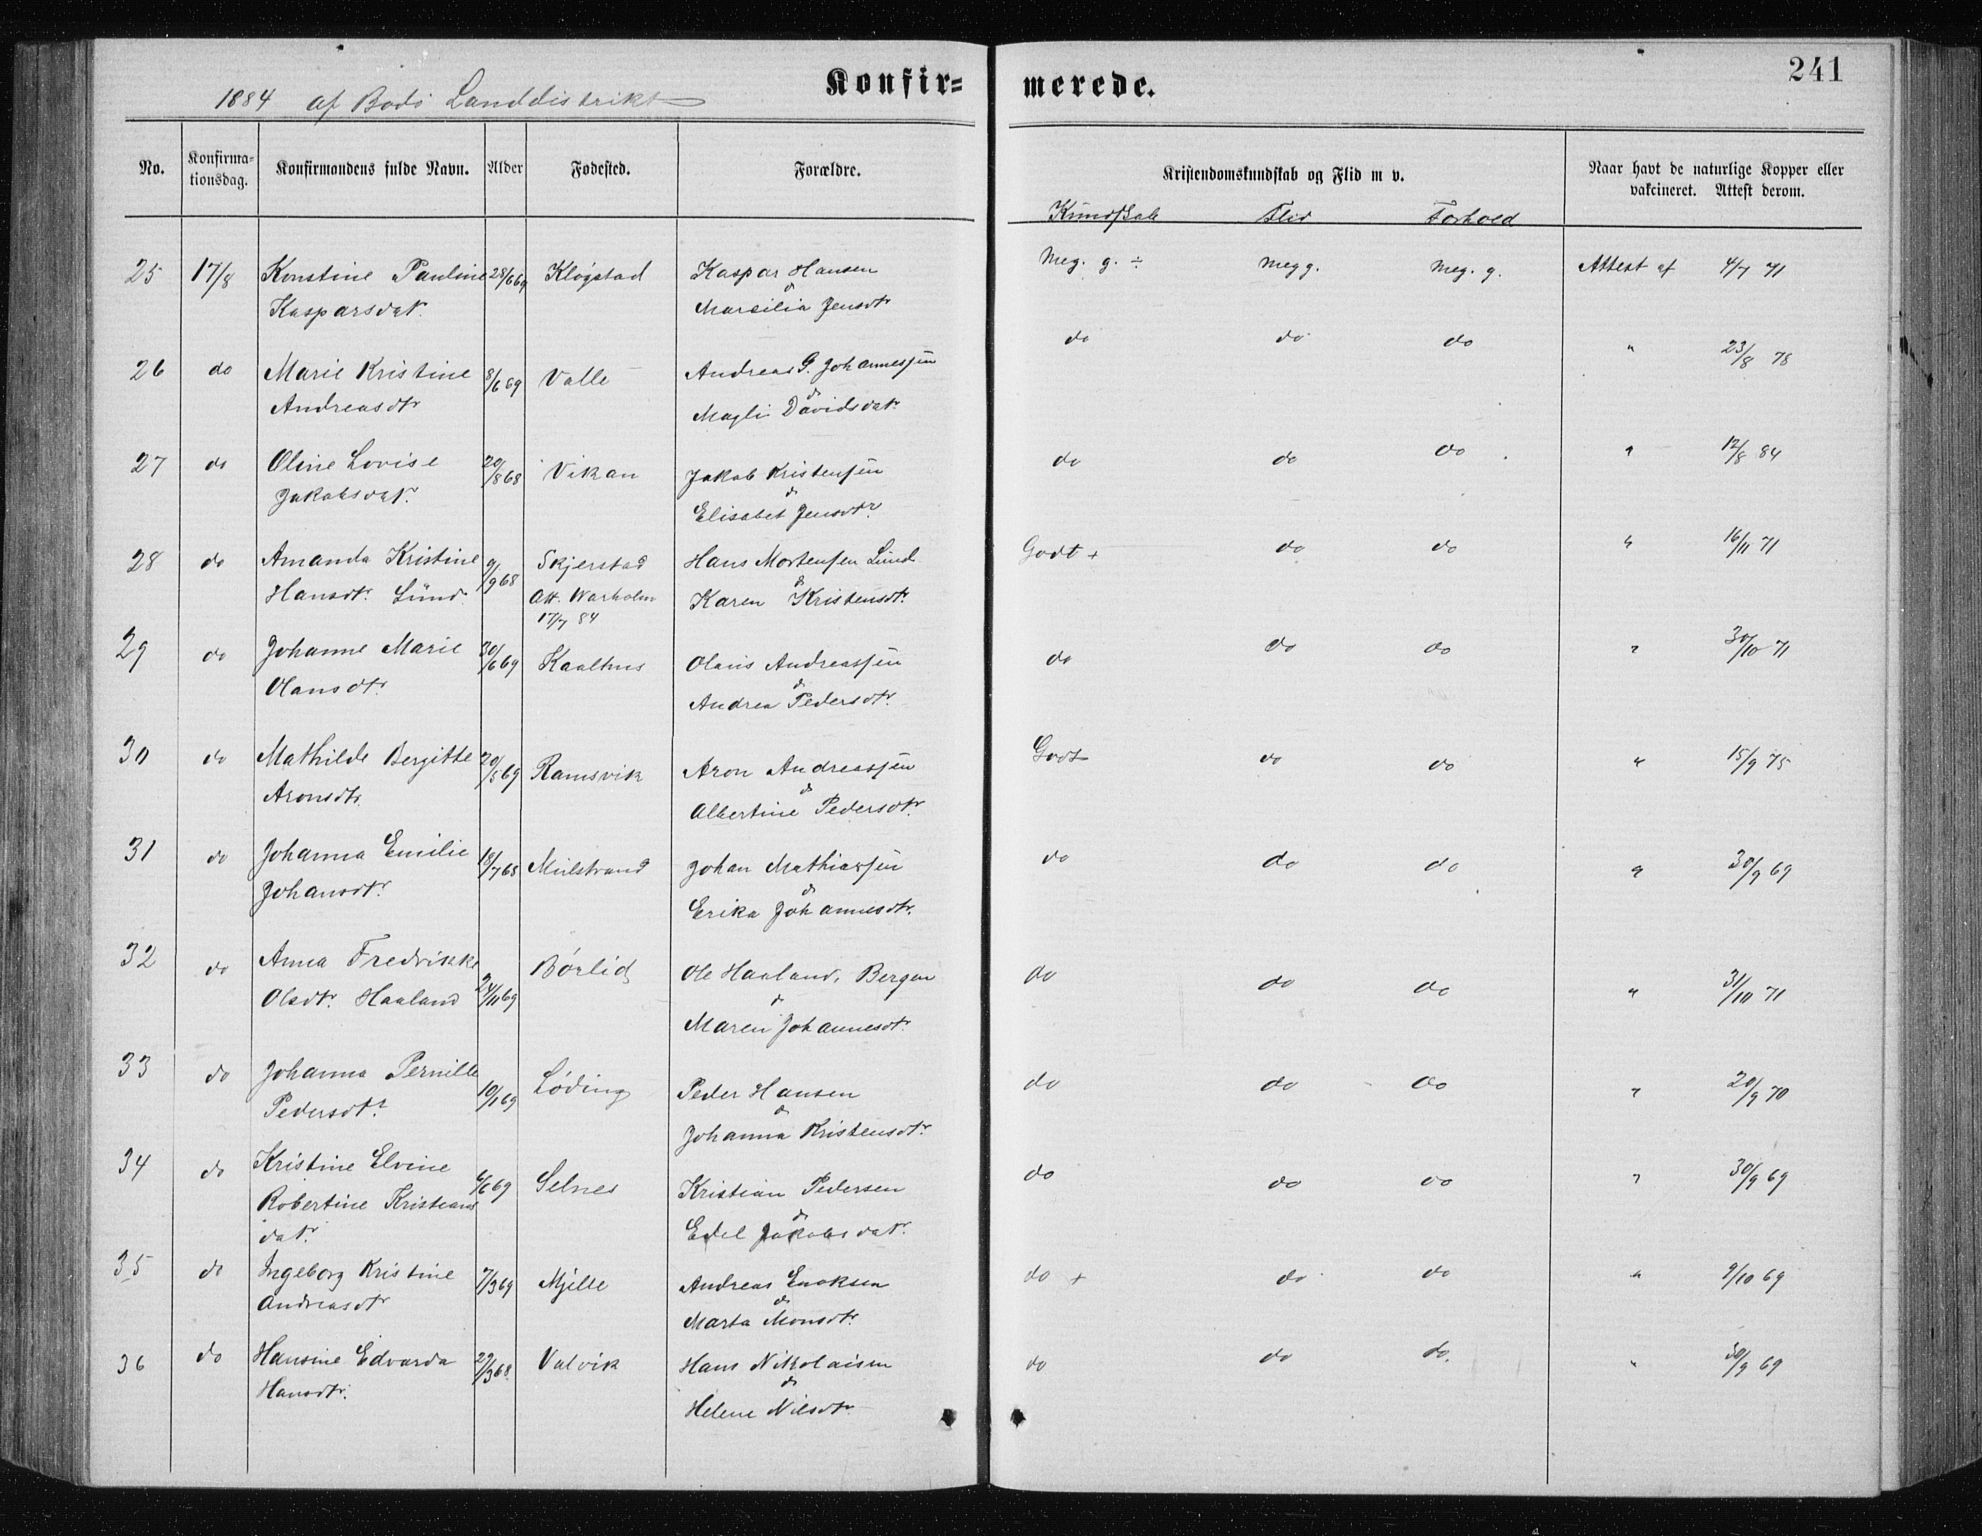 241
Konfir-merede.
1884 af Bodö Landdistrikt
No. Konfirma-tionsdag. Konfirmandens fulde Navn. Alder Fødested. Forældre. Kristendomskundskab og Flid m v. Naar havt de naturlige Kopper eller vakcineret. Attest derom.
Kundskab Flid Forhold
25 17/8 Konstine Pauline 28/6 69 Kløgstad Kaspar Hansen Meg. g. ÷ meg g. meg. g. Attest af 4/7 71
Kasparsdat. & Marsilia Jensdtr
26 do Marie Kristine 8/6 69 Valle Andreas G. Johannesen do do do " 23/8 78
Andreasdtr & Magli Davidsdatr
27 do Oline Lovise 20/8 68 Vikan Jakob Kristensen do do do " 12/8 84
Jakobsdatr. & Elisabet Jensdtr
28 do Amanda Kristine 9/9 68 Skjerstad Hans Mortensen Lund Godt + do do " 16/11 71
Hansdtr. Lund Att. Warholm & Karen Kristensdtr.
17/7 84
29 do Johanne Marie 30/6 69 Kaalhus Olaus Andreassen do do do " 30/10 71
Olausdtr. & Andrea Pedersdtr.
30 do Mathilde Bergitte 20/5 69 Ramsvik Aron Andreassen Godt do do " 15/9 75
Aronsdtr. & Albertine Pedersdtr.
31 do Johanna Emilie 18/7 68 Mulstrand Johan Mathiassen do do do " 30/9 69
Johansdtr. & Erika Johannesdtr.
32 do Anna Fredrikke 24/11 69 Børlid Ole Haaland, Bergen do do do " 31/10 71
Olsdtr. Haaland & Maren Johannesdtr.
33 do Johanna Pernille 10/1 69 Løding Peder Hansen do do do " 20/9 70
Pedersdtr & Johanna Kristensdtr.
34 do Kristine Elvine 6/6 69 Selnes Kristian Pedersen do do do " 30/9 69
Robertine Kristians & Edel Jakobsdatr.
datr.
35 do Ingeborg Kristine 7/3 69 Mjelle Andreas Enoksen do + do do " 9/10 69
Andreasdtr & Marta Monsdtr.
36 do Hansine Edvarda 29/3 68 Valvik Hans Nikolaisen do do do. " 30/9 69
Hansdtr. & Helene Nilsdtr